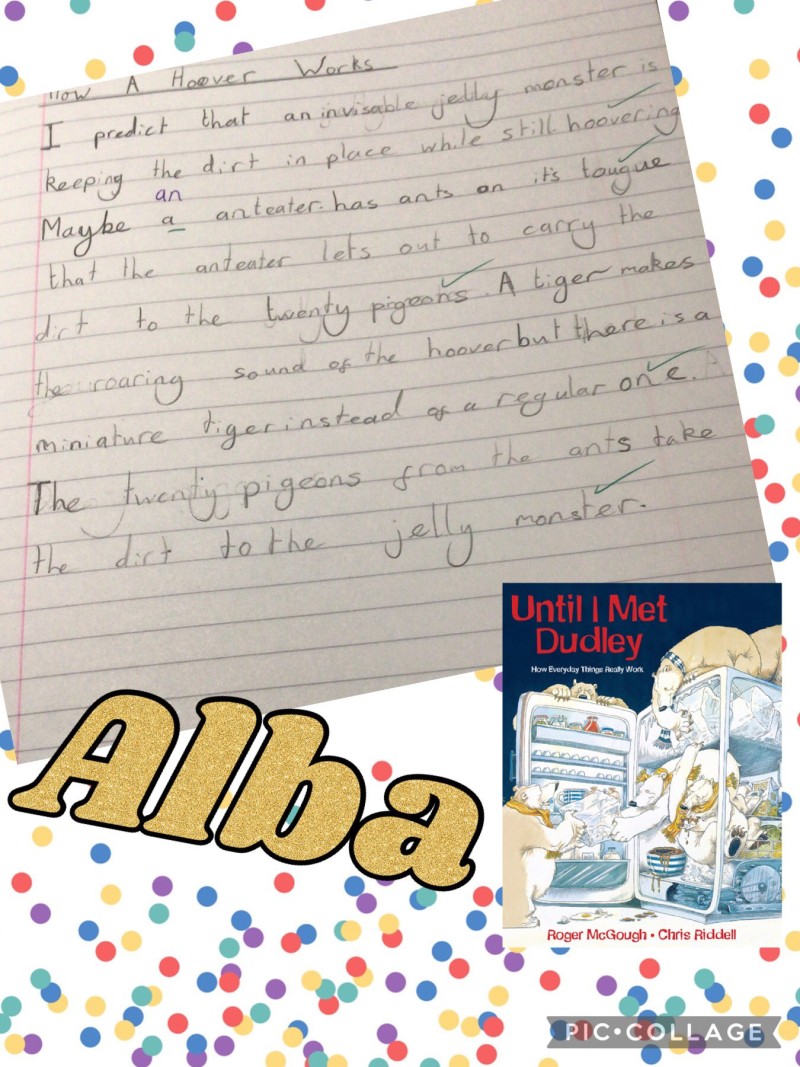 How A Hoover Works
I predict that an invisable jelly monster is
keeping the dirt in place while still hoovering
an
Maybe a anteater has ants on it's tougue
that the anteater lets out to carry the
dirt to the twenty pigeons. A tiger makes
the roaring sound of the hoover but there is a
miniature tiger instead of a regular one.
The twenty pigeons from the ants take
the dirt to the jelly monster.
Until I Met
Dudley
How Everyday Things Really Work
Roger McGough • Chris Riddell
Alba
PIC•COLLAGE